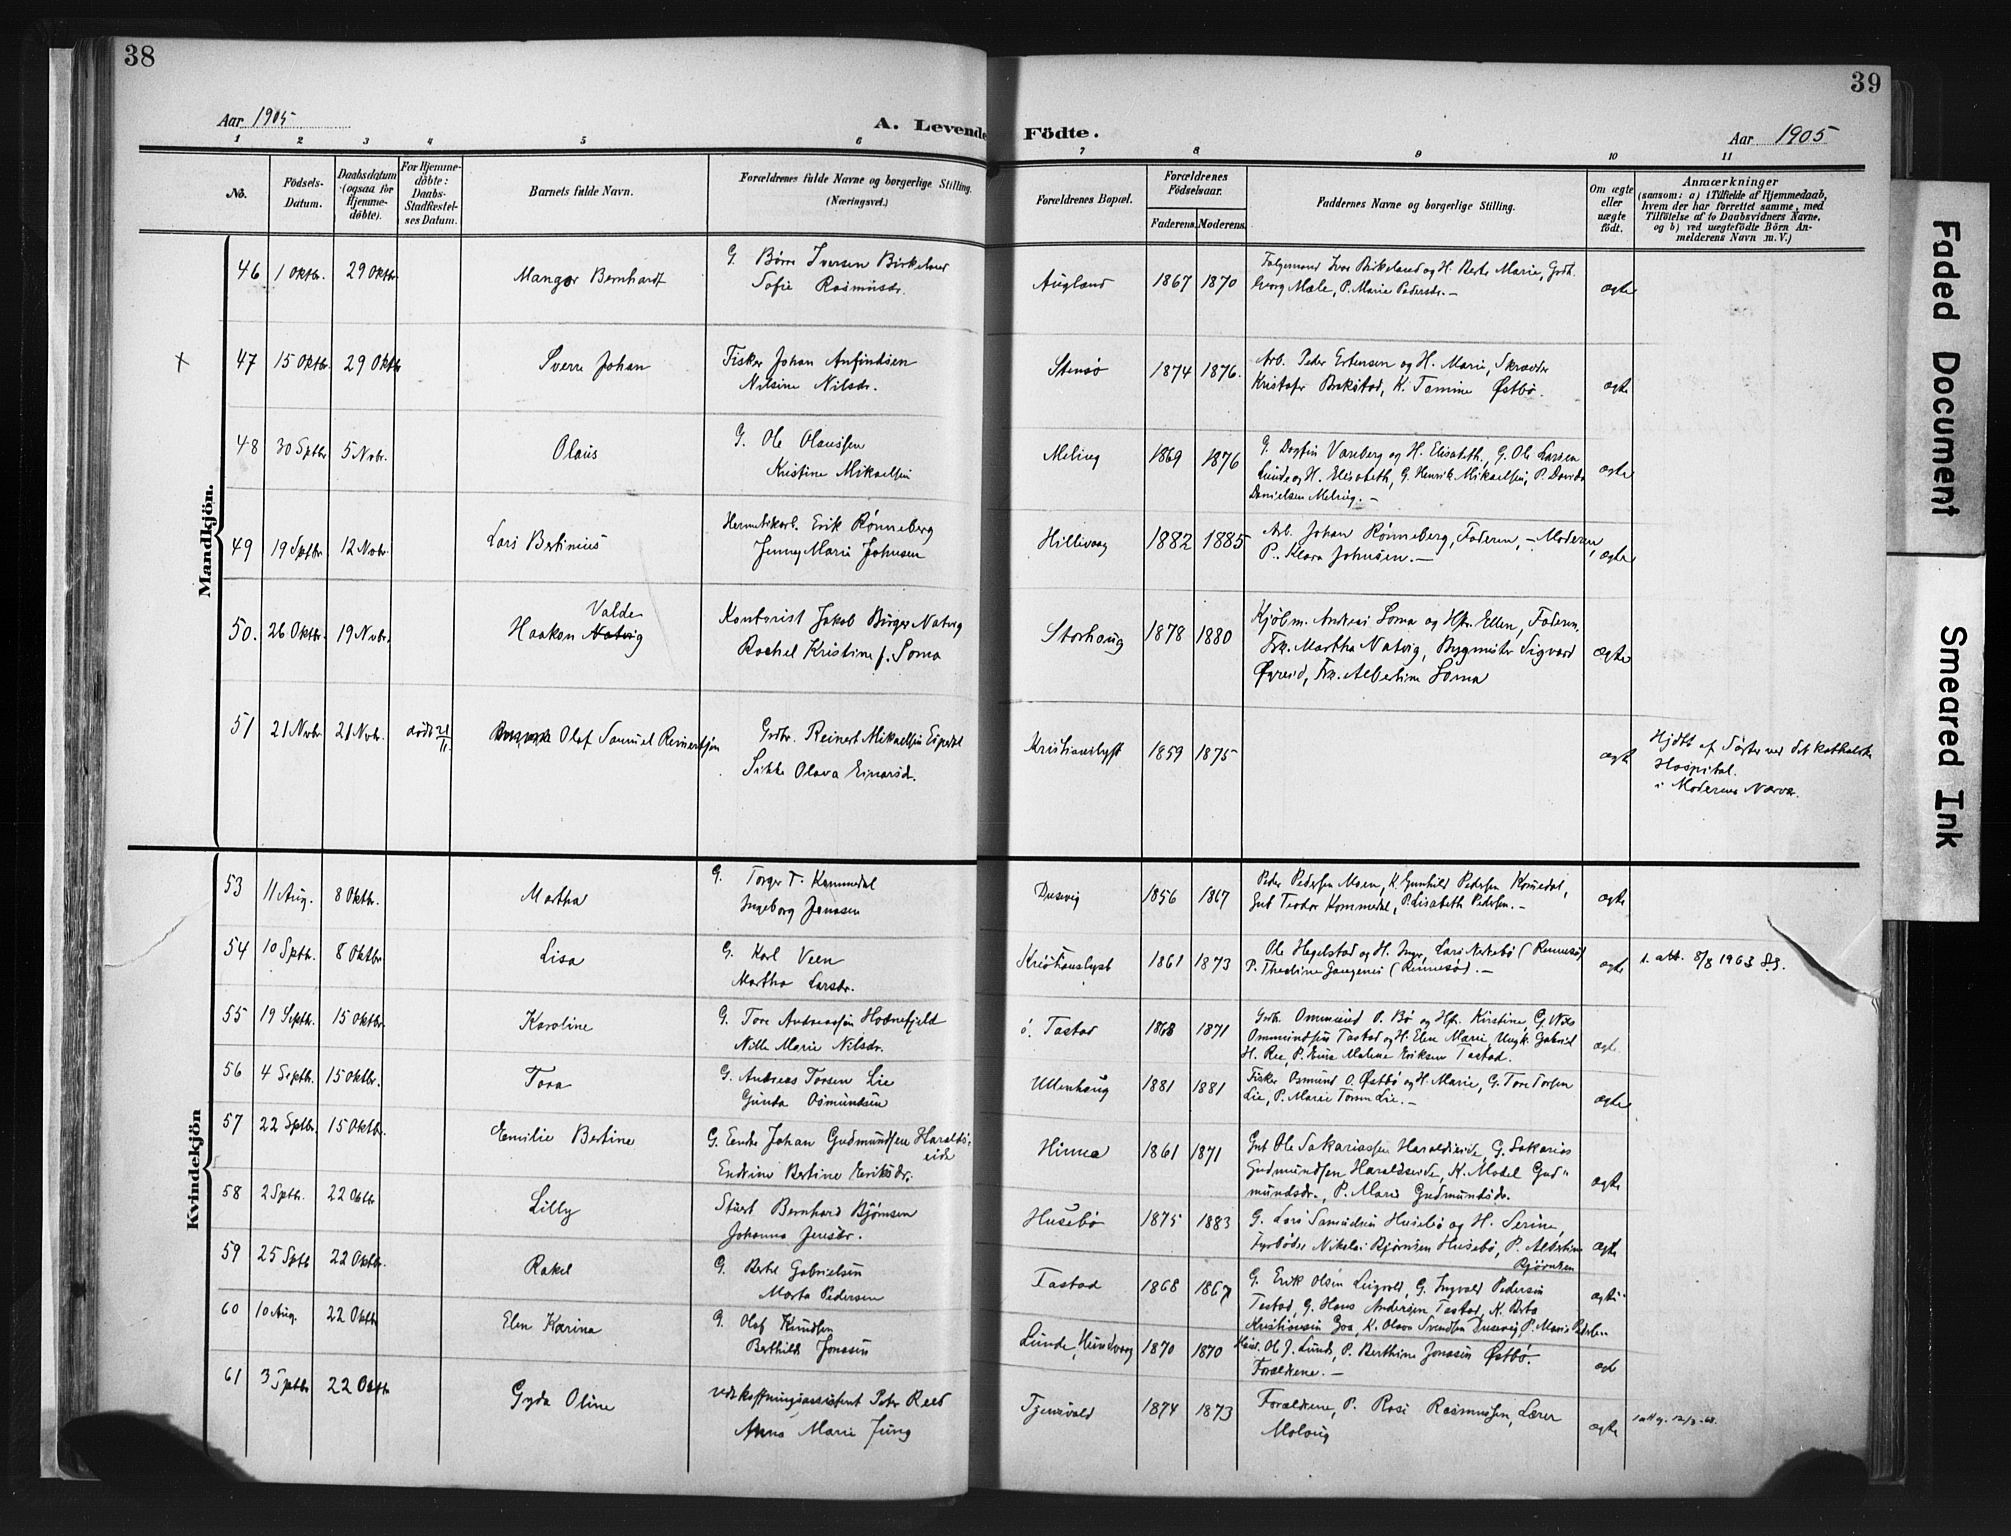 38
39
Aar 1905
A. Levende Födte.
Aar 1905
1 2 3 4 5 6 7 8 9 10 11
No.
Födsels-Datum.
Daabsdatum (ogsaa for Hjemme-döbte).
For Hjemme-döbte: Daabs-Stadfæstel-ses Datum.
Barnets fulde Navn.
Forældrenes fulde Navne og borgerlige Stilling. (Næringsvei.)
Forældrenes Bopæl.
Forældrenes Födselsaar.
Faderens. Moderens.
Faddernes Navne og borgerlige Stilling.
Om ægte eller uægte födt.
Anmærkninger
(saasom: a) i Tilfælde af Hjemmedaab,
hvem der har forrettet samme, med
Tilföielse af to Daabsvidners Navne,
og b) ved uægtefödte Börn An-
melderens Navn m. V.)
Mandkjön.
46 1 Oktbr. 29 Oktbr Mangor Bernhardt G. Börre Iversen Birkeland
Sofie Rasmusdr.
Augland 1867 1870 Ivar Birkeland og H. Berte Marie,
Georg Mæle, P. Marie Pedersdr. — ægte
x 47 15 Oktbr. 29 Oktb Sverre Johan Fisker Johan Anfindsen
Nilsine Nilsdr.
Stensö 1874 1876. Arb. Peder Ertensen og H. Marie, Skræder
Kristofer Bakstad, K. Tomine Østbö. ægte
48 30 Sptbr 5 Nvbr. Olaus G. Ole Olaussen
Kristine Mikaelsen
Meling 1869 1876 G. Dagfin Vareberg og H. Elisabeth, G. Ole Larsen
Lunde og H. Elisabeth, G. Henrik Mikaelsen, P.
Danielsen Meling. — ægte
49 19 Sptbr 12 Nvbr. Lars Bertinius Hermetikarb. Erik Rønneberg
Jenny Marie Johnsen
Hillevaag 1882 1885 Arb. Johan Rønneberg, Faderen, — Moderen,
P. Klara Johnsen. — ægte
50. 26 Oktbr. 19 Nvbr. Haakon Valde Kontorist Jakob Börger Natvig
Rachel Kristine f. Soma
Storhaug 1878 1880 Kjöbm. Andreas Soma og Hstr. Ellen, Faderen,
Frk. Martha Natvig, Bygmster Sigvard
Øvreid, Frk. Albertine Soma ægte
51 21 Nvbr. 21 Nvbr. död 21/11. Olaf Samuel Reinertsen Grdbr. Reinert Mikaelsen Espedal
Sikke Olava Einarsd.
Kristianslyst 1859 1875 ægte Hjdbt af Söster ved det katholske
Hospital.
i Moderens Nærvær.
Kvindekjön
53 11 Aug. 8 Oktbr. Martha G. Torger T. Kommedal
Ingeborg Jonassen
Dusevig 1856 1867 Peder Pedersen Moen, K. Gunhild Pedersen Komedal,
Gut Teodor Kommedal, P. Lisabeth Pedersen. — ægte
54 10 Sptb. 8 Oktbr Lisa G. Karl Veen
Martha Larsdr.
Kristianslyst 1861 1873 Ole Hegelstad og H. Inger, Lars Nerebö (Rennesö)
P. Theodine (Rennesö). — ægte 1. att. 8/8 1963 S.S.
55 19 Septb. 15 Oktbr. Karoline G. Tore Andreassen Hodnefjeld
Nille Marie Nilsdr.
ö. Tastad 1868 1871 Grdb. Ommund O. Bö og Hstr. Kirstine, G. Nils
Ommundsen Tastad og H. Elen Marie Ungk. Gabriel
H. Ree, P. Malene Eriksen Tastad. ægte
56 4 Septb. 15 Oktbr. Tora G. Andreas Torsen Lie
Gunda Osmundsen
Ullenhaug 1881 1881 Fisker Osmund O. Østbö og H. Marie, G. Tore Torsen
Lie, P. Marie Torsen Lie. — ægte
57 22 Sptbr. 15 Oktbr. Emilie Bertine G. Endre Johan Gudmundsen Haralds-
eide
Endrine Bertine Eriksdr.
Hinna 1861 1871 Gut Ole Sakariassen Haraldseide, G. Sakarias
Gudmundsen Haraldseide, K. Madel Gud-
mundsdr., P. Maria Gudmundsdr. ægte
58 2 Sptb. 22 Oktb Lilly Stuert Bernhard Bjørnsen
Johanna Jensdr.
Husebö 1875 1883 G. Lars Samuelsen Husebö og H. Serine,
Fyrböder Nikolai Bjørnsen Husebö, P. Albertine
Bjørnsen ægte
59 25 Sptb 22 Oktbr. Rakel G. Bertel Gabrielsen
Marta Pedersen
Tastad 1868 1867 G. Erik Olsen Leigvold, G. Ingvald Pedersen
Tastad, G. Hans Andersen Tastad, K. Berta
Kristiansen Goa, K. Olava Svendsen Dusevig, P. Marie Pedersen ægte
60 10 Aug. 22 Oktb Elen Karina G. Olaf Knudsen
Berthilde Jonassen
Lunde, Hundvaag 1870 1870 Ole J. Lunde, P. Berthine Jonassen Østbö.
Forældrene. — ægt
61 3 Sptbr 22 Oktb Gyda Oline vedskaffningsassistent Peter Reed
Anna Marie Jung
Tjensvold 1874 1873 Forældrene, P. Rasi Rasmussen, Lærer
Malaug ægte 1 att g. 12/3-68.
Faded Document
Smeared Ink